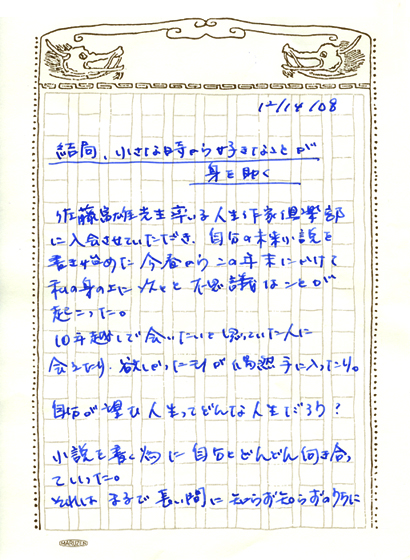 12/14/08
結局、小さな時から好きなことが
身を助く
佐藤富雄先生率いる人生作家倶楽部
に入会させていただき、自分の未来小説を
書き始めた今春からこの年末にかけて
私の身の上に次々と不思議なことが
起こった。
10年越しで会いたいと思っていた人に
会えたり、欲しかったモノが偶然手に入ったり。
自分が望む人生ってどんな人生だろう?
小説を書く為に自分とどんどん向き合っ
ていった。
それはまるで長い間に知らず知らずのうちに
MARUZEN